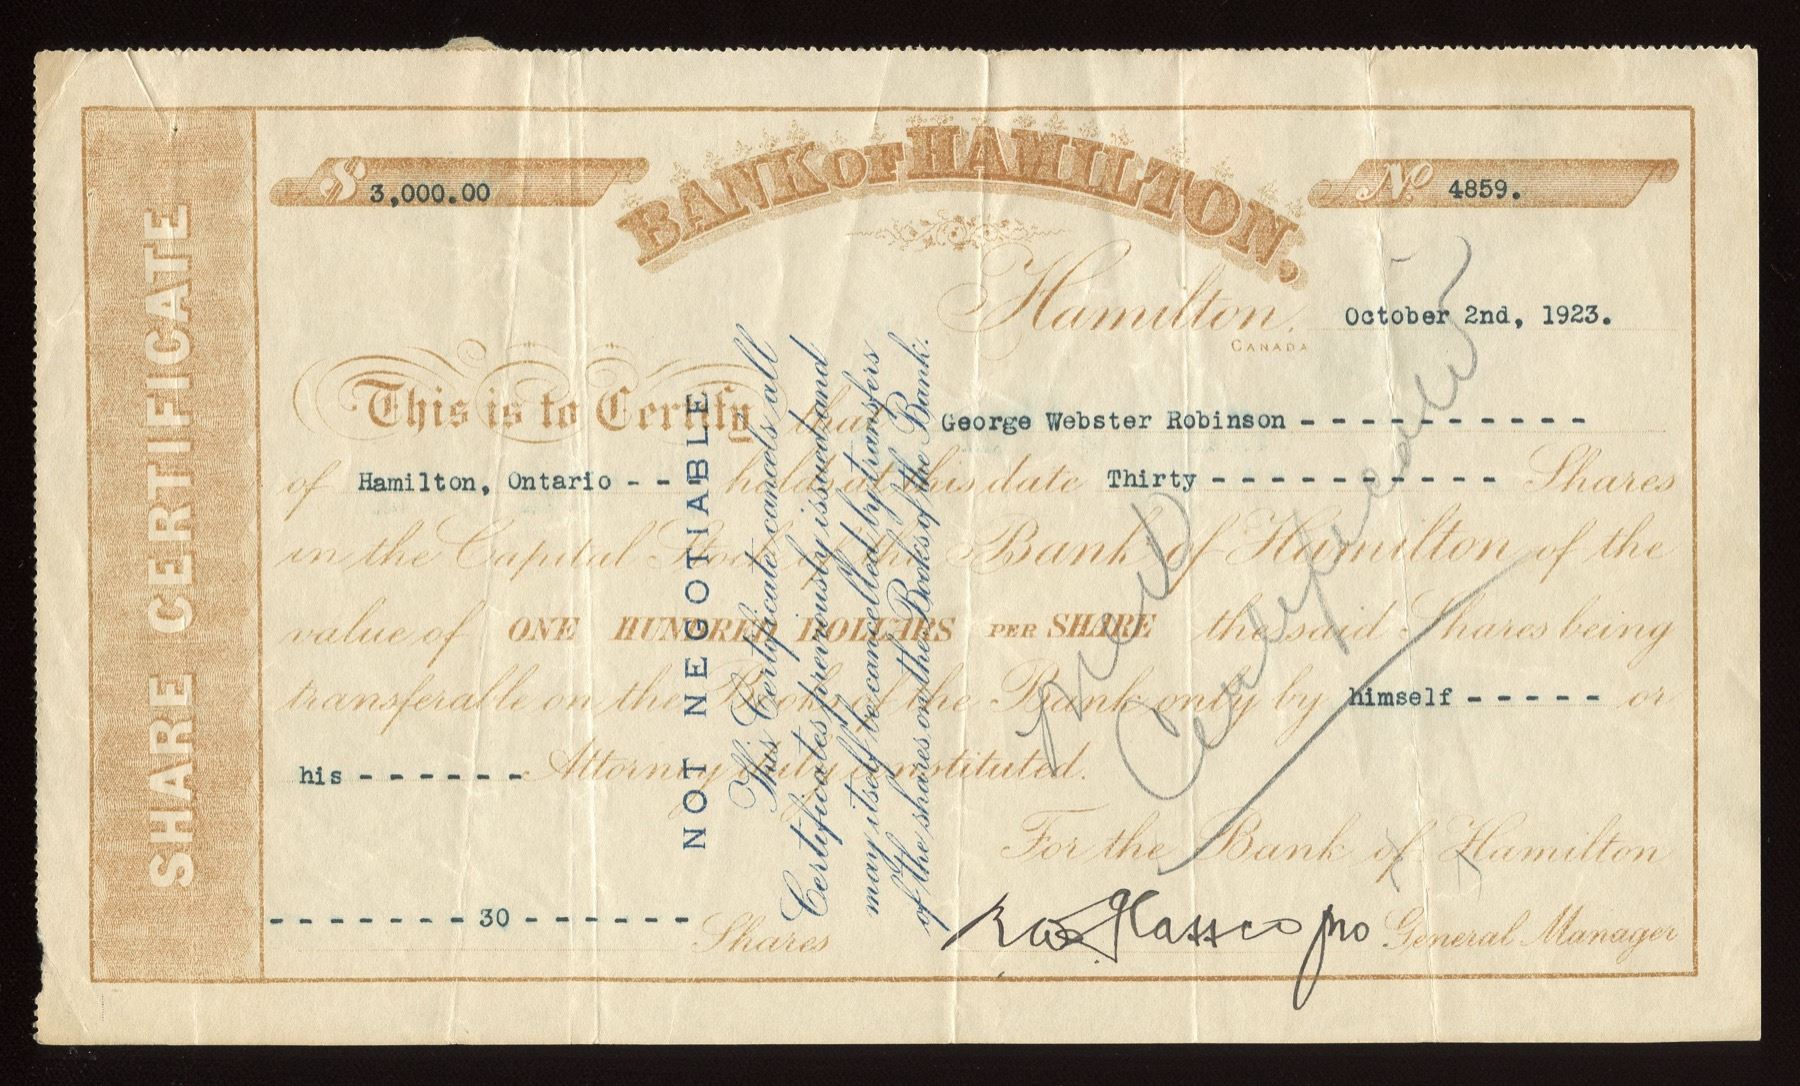 SHARE CERTIFICATE
$ 3,000.00
BANK OF HAMILTON.
No 4859.
Hamilton, October 2nd, 1923.
CANADA
This is to Certify that George Webster Robinson - - - - - - - - - -
of Hamilton, Ontario - - holds at this date Thirty - - - - - - - - - - Shares
in the Capital Stock of the Bank of Hamilton of the
value of ONE HUNDRED DOLLARS PER SHARE the said Shares being
transferable on the Books of the Bank only by himself - - - - - or
his - - - - - - Attorney duly constituted.
For the Bank of Hamilton
- - - - - - - 30 - - - - - - Shares
General Manager
NOT NEGOTIABLE
This Certificate cancels all
Certificates previously issued and
may itself be cancelled by transfers
of the shares on the Books of the Bank.